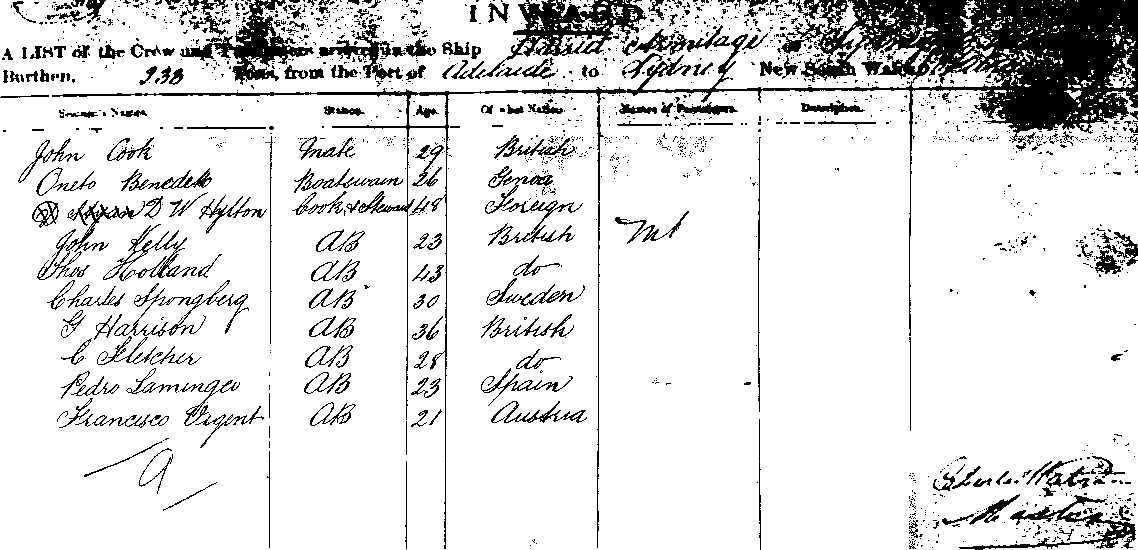 INWARD
A LIST of the Crew and Passengers arrived in the Ship Harriet Armitage of Sydney
Burthen, 233 Tons, from the Port of Adelaide to Sydney New South Wales
Seamen's Names. Station. Age. Of what Nation. Names of Passengers. Description.
John Cook Mate 29 British
Oneto Benedetto Boatswain 26 Genoa
D W Hylton Cook & Steward 48 Foreign
John Kelly AB 23 British Nil
Thos Holland AB 43 do
Charles Spongberg AB 30 Sweden
G Harrison AB 36 British
C Fletcher AB 28 do
Pedro Lamingeo AB 23 Spain
Francisco Urgent AB 21 Austria
Master